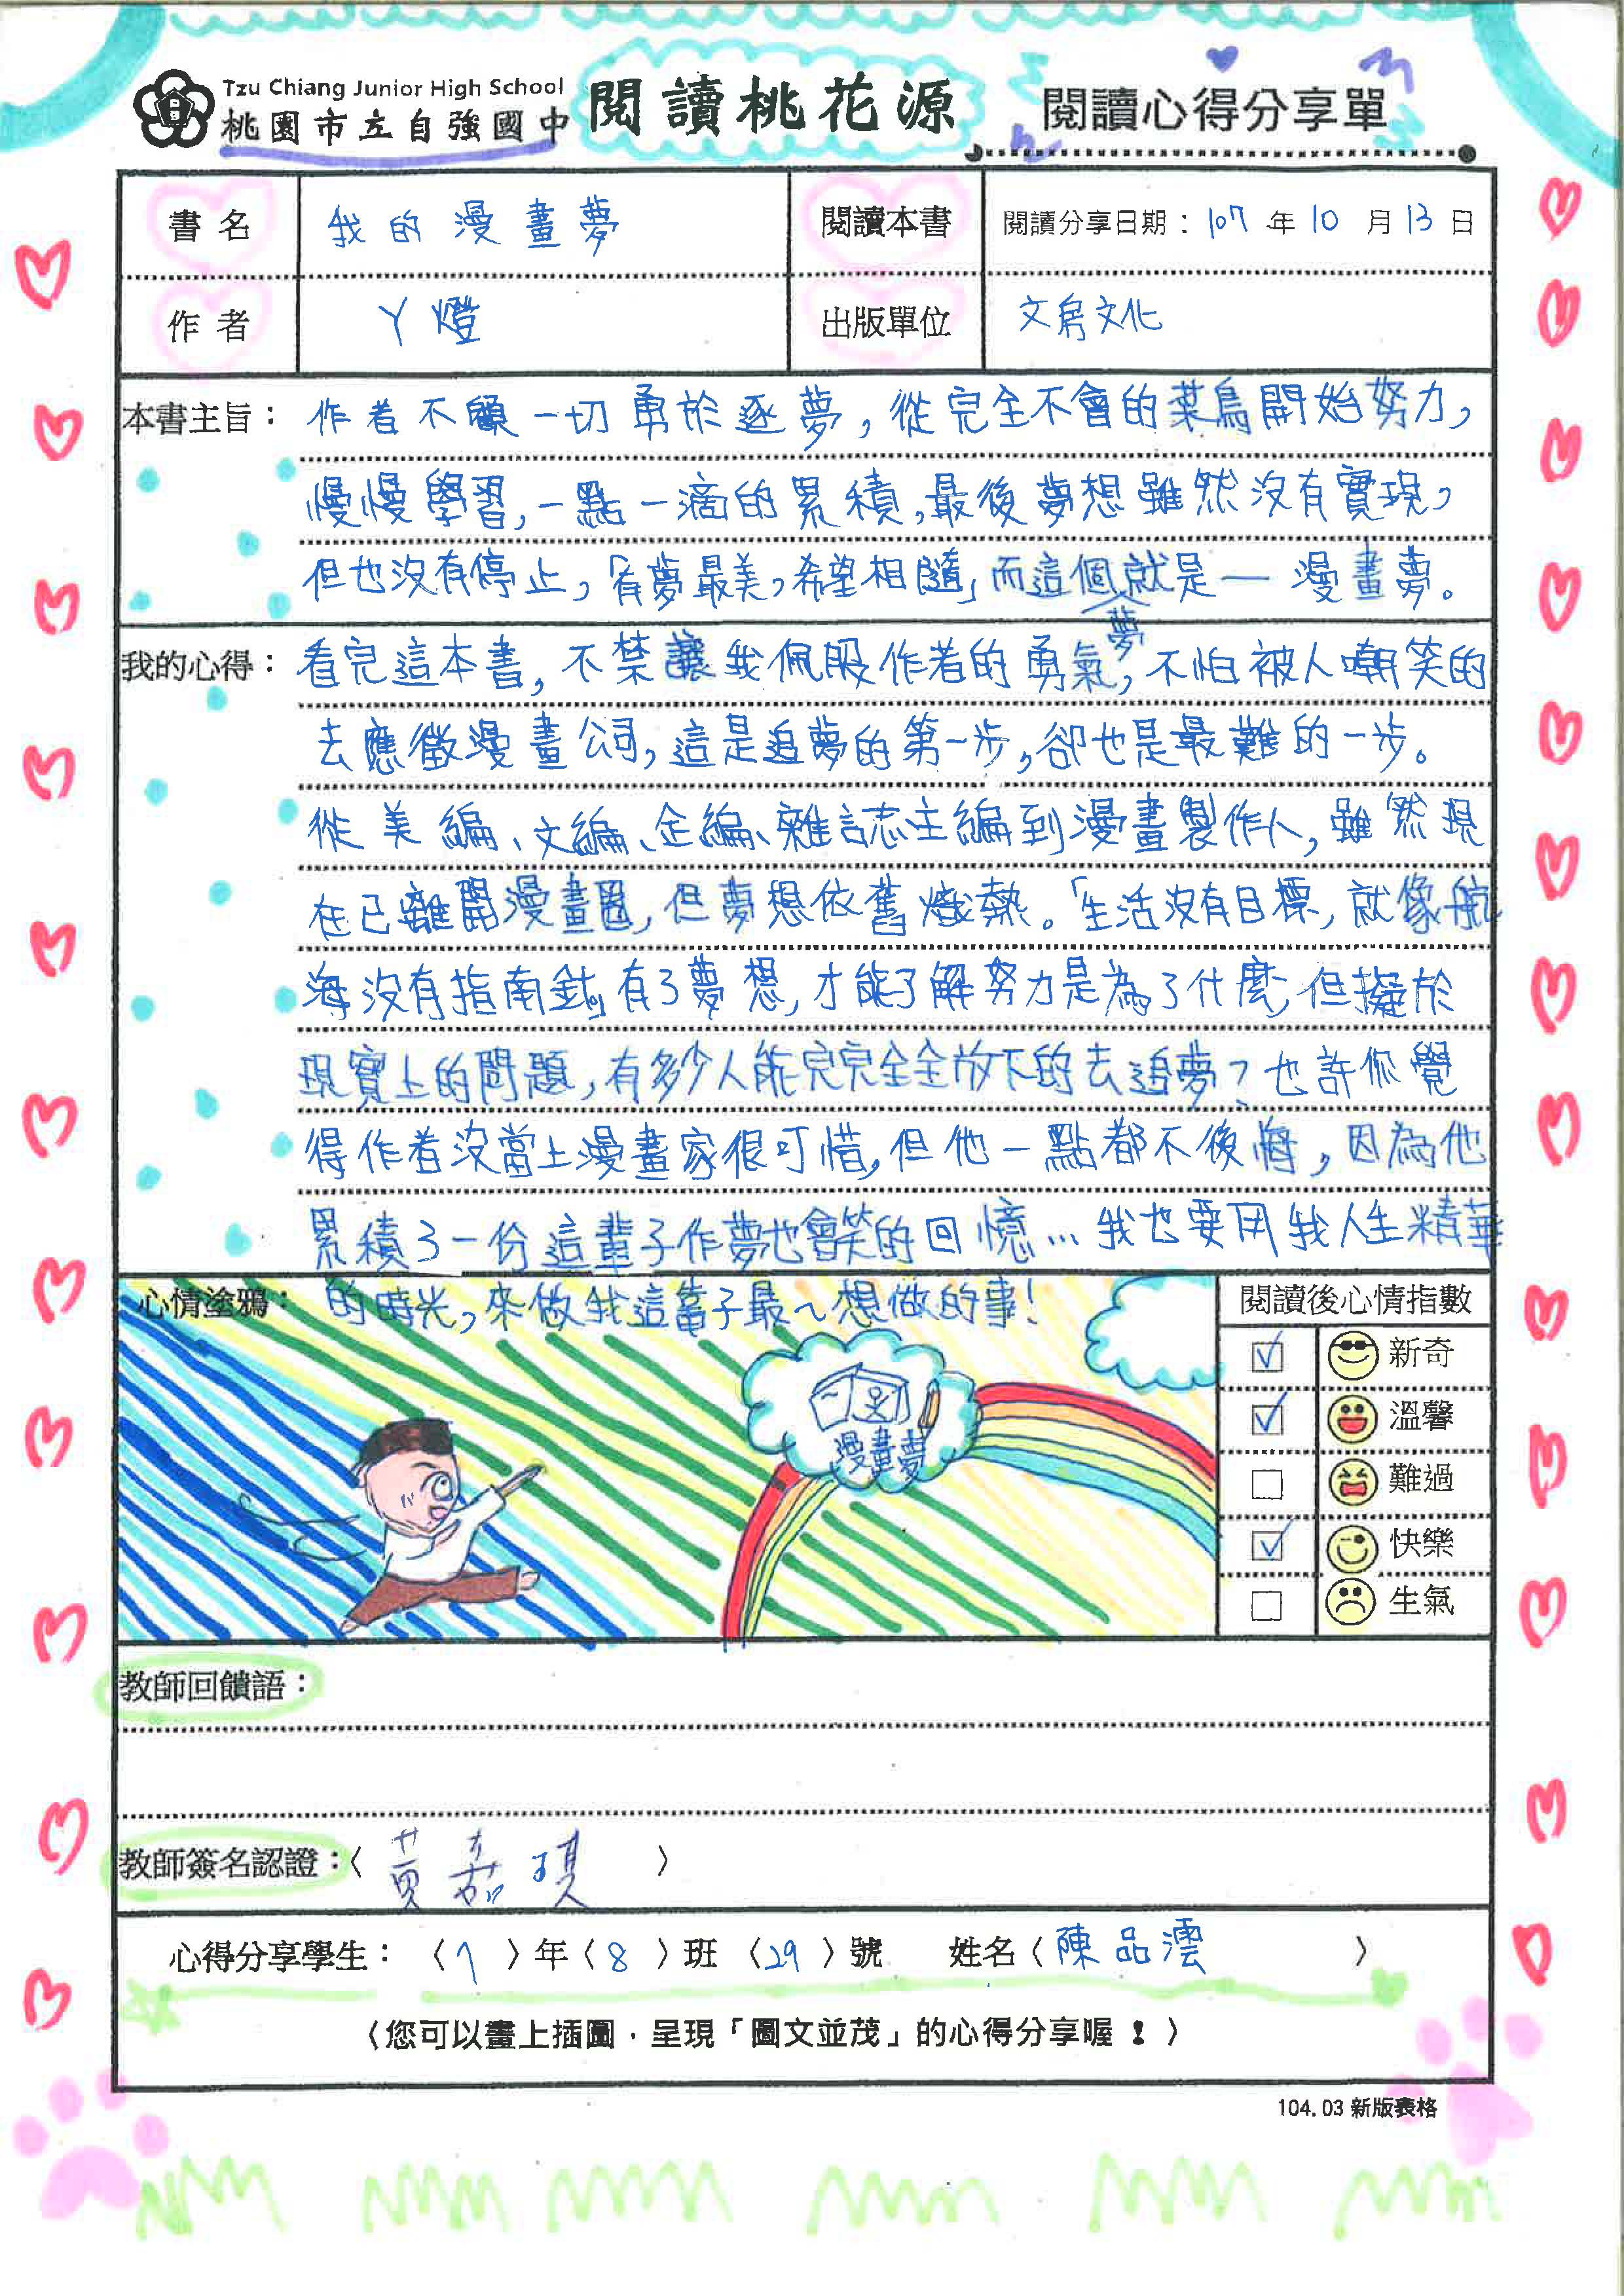 Tzu Chiang Junior High School
桃園市立自強國中 閱讀桃花源 閱讀心得分享單
書名 我的漫畫夢 閱讀本書 閱讀分享日期：107年10月13日
作者 丫燈 出版單位 文房文化
本書主旨：作者不顧一切勇於逐夢，從完全不會的菜鳥開始努力，
慢慢學習，一點一滴的累積，最後夢想雖然沒有實現，
但也沒有停止，「有夢最美，希望相隨」而這個夢就是—漫畫夢。
我的心得：看完這本書，不禁讓我佩服作者的勇氣，不怕被人嘲笑的
去應徵漫畫公司，這是追夢的第一步，卻也是最難的一步。
從美編、文編、企編、雜誌主編到漫畫製作人，雖然現
在已離開漫畫圈，但夢想依舊熾熱。「生活沒有目標，就像航
海沒有指南針」有了夢想，才能了解努力是為了什麼，但擬於
現實上的問題，有多少人能完完全全放下的去追夢？也許你覺
得作者沒當上漫畫家很可惜，但他一點都不後悔，因為他
累積了一份這輩子作夢也會笑的回憶…我也要用我人生精華
的時光，來做我這輩子最～想做的事！
心情塗鴉：
漫畫夢
閱讀後心情指數
新奇
溫馨
難過
快樂
生氣
教師回饋語：
教師簽名認證：〈黃嘉琪〉
心得分享學生：〈7〉年〈8〉班〈29〉號 姓名〈陳品澐〉
〈您可以畫上插圖，呈現「圖文並茂」的心得分享喔！〉
104.03 新版表格